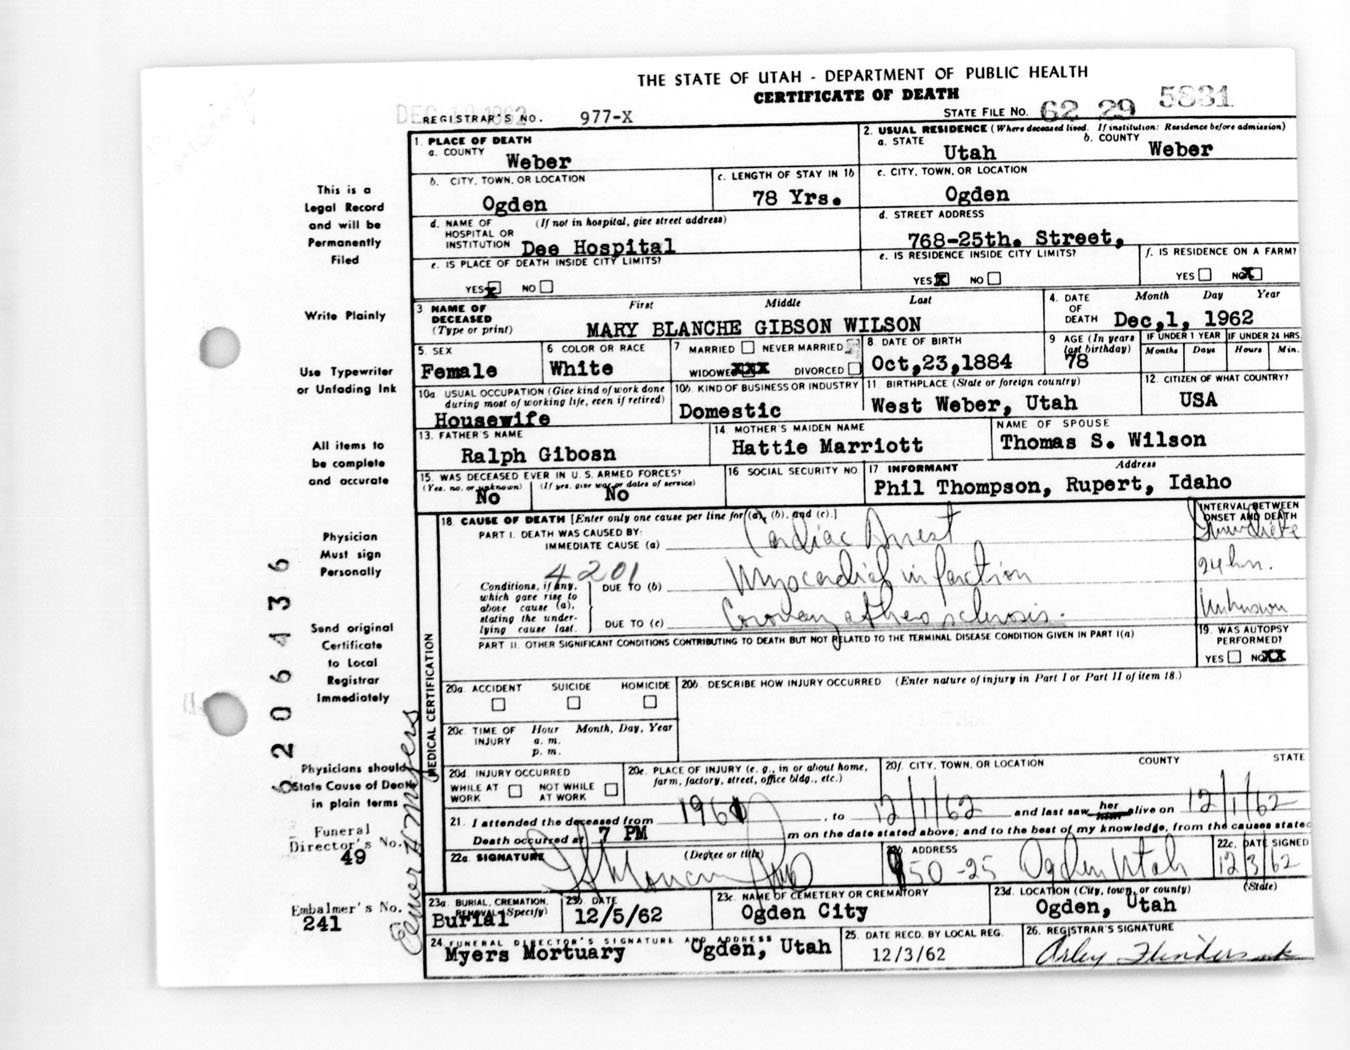 THE STATE OF UTAH - DEPARTMENT OF PUBLIC HEALTH
CERTIFICATE OF DEATH
REGISTRAR'S NO. 977-X
STATE FILE NO. 62 29 5831
1. PLACE OF DEATH
a. COUNTY
Weber
2. USUAL RESIDENCE (Where deceased lived. If institution: Residence before admission)
a. STATE
Utah
b. COUNTY
Weber
b. CITY, TOWN, OR LOCATION
Ogden
c. LENGTH OF STAY IN 1b
78 Yrs.
c. CITY, TOWN, OR LOCATION
Ogden
d. NAME OF HOSPITAL OR INSTITUTION
(If not in hospital, give street address)
Dee Hospital
d. STREET ADDRESS
768-25th. Street,
e. IS PLACE OF DEATH INSIDE CITY LIMITS?
YES X NO
e. IS RESIDENCE INSIDE CITY LIMITS?
YES X NO
f. IS RESIDENCE ON A FARM?
YES NO X
3 NAME OF DECEASED
(Type or print)
First Middle Last
MARY BLANCHE GIBSON WILSON
4. DATE OF DEATH
Month Day Year
Dec,1, 1962
5. SEX
Female
6 COLOR OR RACE
White
7 MARRIED NEVER MARRIED
WIDOWED XXX DIVORCED
8 DATE OF BIRTH
Oct,23,1884
9 AGE (In years last birthday)
78
IF UNDER 1 YEAR
Months Days
IF UNDER 24 HRS.
Hours Min.
10a. USUAL OCCUPATION (Give kind of work done during most of working life, even if retired)
Housewife
10b. KIND OF BUSINESS OR INDUSTRY
Domestic
11. BIRTHPLACE (State or foreign country)
West Weber, Utah
12. CITIZEN OF WHAT COUNTRY?
USA
13. FATHER'S NAME
Ralph Gibosn
14 MOTHER'S MAIDEN NAME
Hattie Marriott
NAME OF SPOUSE
Thomas S. Wilson
15. WAS DECEASED EVER IN U.S. ARMED FORCES?
(Yes, no, or unknown) (If yes, give war or dates of service)
No No
16. SOCIAL SECURITY NO.
17 INFORMANT Address
Phil Thompson, Rupert, Idaho
18. CAUSE OF DEATH [Enter only one cause per line for (a), (b), and (c).]
PART I. DEATH WAS CAUSED BY:
IMMEDIATE CAUSE (a) Cardiac Arrest
INTERVAL BETWEEN ONSET AND DEATH
Immediate
4201
Conditions, if any, which gave rise to above cause (a), stating the underlying cause last.
DUE TO (b) Myocardial infarction
24 hrs.
DUE TO (c) Coronary atherosclerosis.
Unknown
PART II. OTHER SIGNIFICANT CONDITIONS CONTRIBUTING TO DEATH BUT NOT RELATED TO THE TERMINAL DISEASE CONDITION GIVEN IN PART I(a)
19. WAS AUTOPSY PERFORMED?
YES NO XX
MEDICAL CERTIFICATION
20a. ACCIDENT SUICIDE HOMICIDE
20b. DESCRIBE HOW INJURY OCCURRED (Enter nature of injury in Part I or Part II of item 18.)
20c. TIME OF INJURY
Hour Month, Day, Year
a. m.
p. m.
20d. INJURY OCCURRED
WHILE AT WORK NOT WHILE AT WORK
20e. PLACE OF INJURY (e. g., in or about home, farm, factory, street, office bldg., etc.)
20f. CITY, TOWN, OR LOCATION COUNTY STATE
21. I attended the deceased from 1961, to 12/1/62 and last saw her him alive on 12/1/62
Death occurred at 7 PM m on the date stated above; and to the best of my knowledge, from the causes stated
22a. SIGNATURE (Degree or title)
22b. ADDRESS
950-25 Ogden Utah
22c. DATE SIGNED
12/3/62
23a. BURIAL, CREMATION, REMOVAL (Specify)
Burial
23b. DATE
12/5/62
23c. NAME OF CEMETERY OR CREMATORY
Ogden City
23d. LOCATION (City, town, or county) (State)
Ogden, Utah
24 FUNERAL DIRECTOR'S SIGNATURE AND ADDRESS
Myers Mortuary Ogden, Utah
25. DATE RECD. BY LOCAL REG.
12/3/62
26. REGISTRAR'S SIGNATURE
This is a
Legal Record
and will be
Permanently
Filed
Write Plainly
Use Typewriter
or Unfading Ink
All items to
be complete
and accurate
Physician
Must sign
Personally
Send original
Certificate
to Local
Registrar
Immediately
Physicians should
State Cause of Death
in plain terms
Funeral
Director's No.
49
Embalmer's No.
241
Elmer H Myers